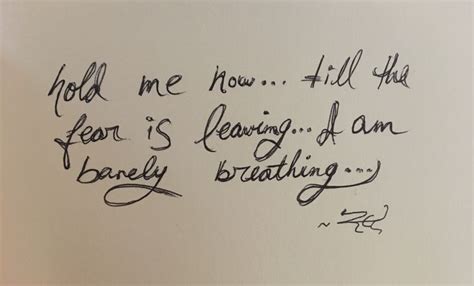 hold me now... till the
fear is leaving... I am
barely breathing...
~